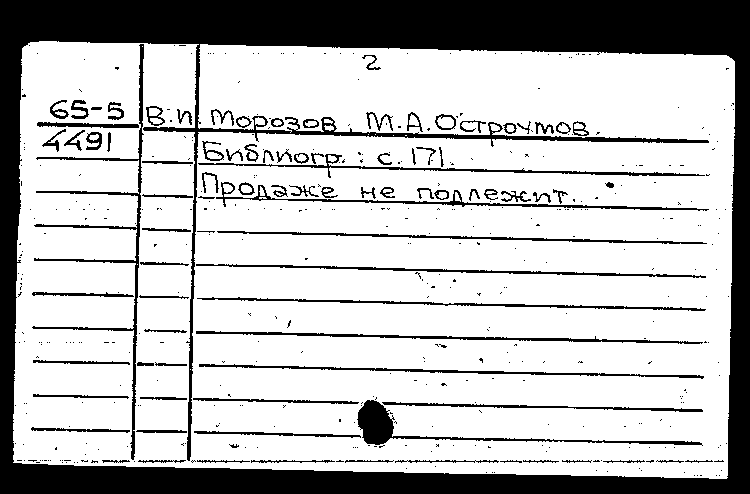 2
65-5 В.П. Морозов, М.А. Остроумов.
4491 Библиогр.: с. 171.
Продаже не подлежит.